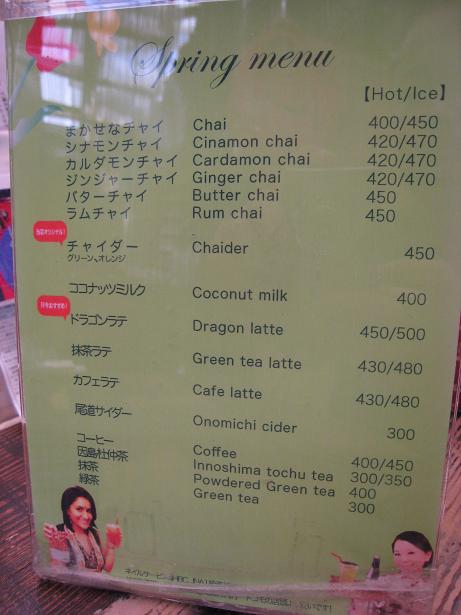 Spring menu
【Hot/Ice】
まかせなチャイ Chai 400/450
シナモンチャイ Cinamon chai 420/470
カルダモンチャイ Cardamon chai 420/470
ジンジャーチャイ Ginger chai 420/470
バターチャイ Butter chai 450
ラムチャイ Rum chai 450
当店オリジナル!
チャイダー Chaider 450
グリーン、オレンジ
ココナッツミルク Coconut milk 400
ドラゴンラテ Dragon latte 450/500
抹茶ラテ Green tea latte 430/480
カフェラテ Cafe latte 430/480
尾道サイダー Onomichi cider 300
コーヒー Coffee 400/450
因島杜仲茶 Innoshima tochu tea 300/350
抹茶 Powdered Green tea 400
緑茶 Green tea 300